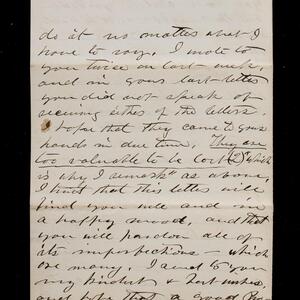 do it no matter what I
have to say. I wrote to
you twice on last week,
and in your last letter
you did not speak of
receiving either of the letters.
I hope that they came to your
hands in due time. They are
too valuable to be lost (?) which
is why I remark" as above,
I trust that this letter will
find you well and in
a happy mood, and that
you will pardon all of
its imperfections – which
are many. I send to you
my kindest & best wishes,
and hope that a good